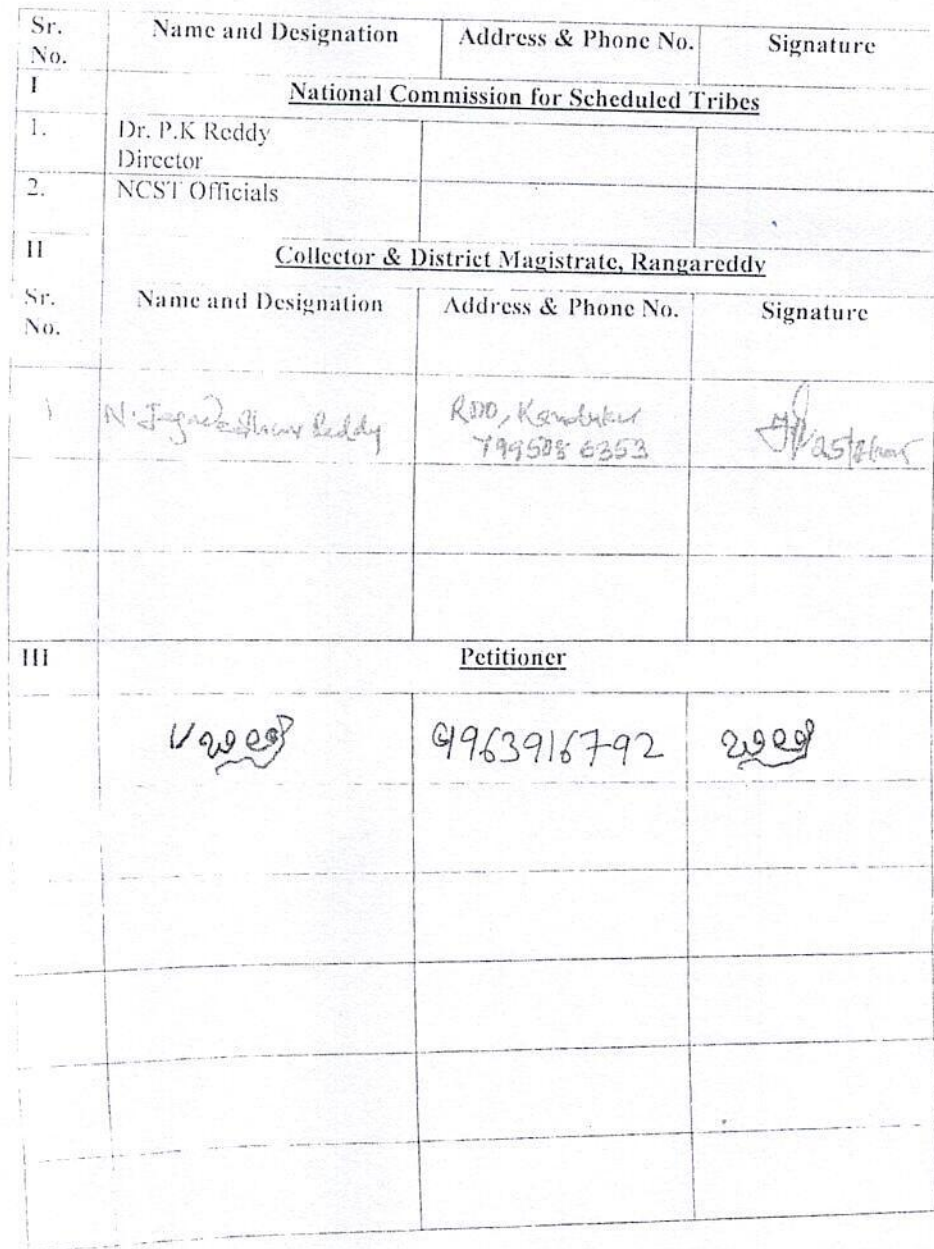 Sr. No. Name and Designation Address & Phone No. Signature
I National Commission for Scheduled Tribes
1. Dr. P.K Reddy
Director
2. NCST Officials
II Collector & District Magistrate, Rangareddy
Sr. No. Name and Designation Address & Phone No. Signature
1 N. Reddy RDO, Kandukur
6353
III Petitioner
V 9963916792